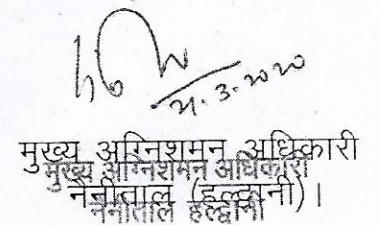 मुख्य अग्निशमन अधिकारी
मुख्य अग्निशमन अधिकारी
नैनीताल (हल्द्वानी)।
नैनीताल हल्द्वानी